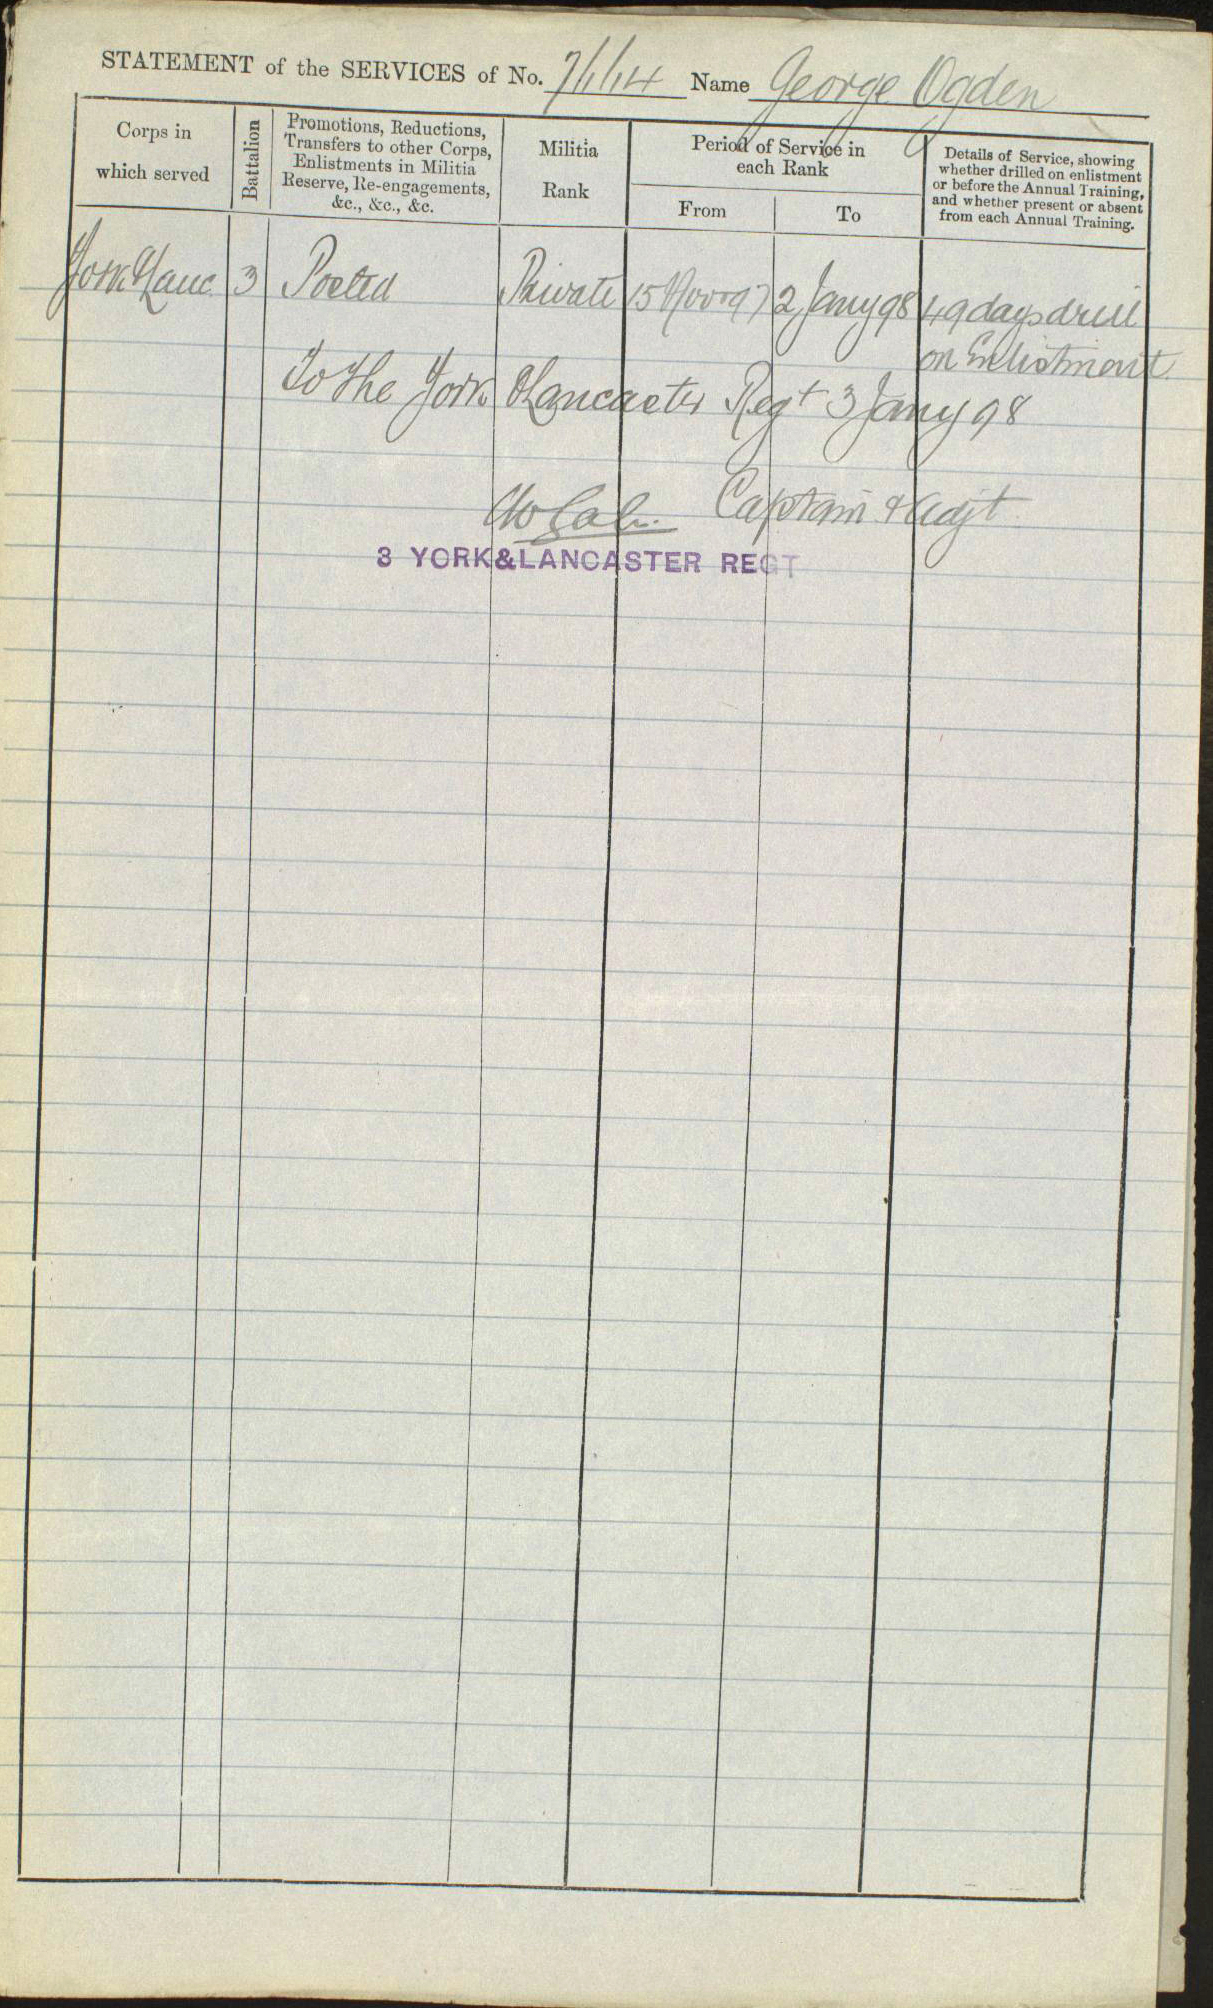 STATEMENT of the SERVICES of No. 7/1/14 Name George Ogden
Corps in
which served
Battalion
Promotions, Reductions,
Transfers to other Corps,
Enlistments in Militia
Reserve, Re-engagements,
&c., &c., &c.
Militia
Rank
Period of Service in
each Rank
From
To
Details of Service, showing
whether drilled on enlistment
or before the Annual Training,
and whether present or absent
from each Annual Training.
York & Lanc 3 Posted Private 15 Nov 97 2 Jany 98 49 days drill
on Enlistment
To the York & Lancaster Regt 3 Jany 98
Captain & Adjt
3 YORK&LANCASTER REGT